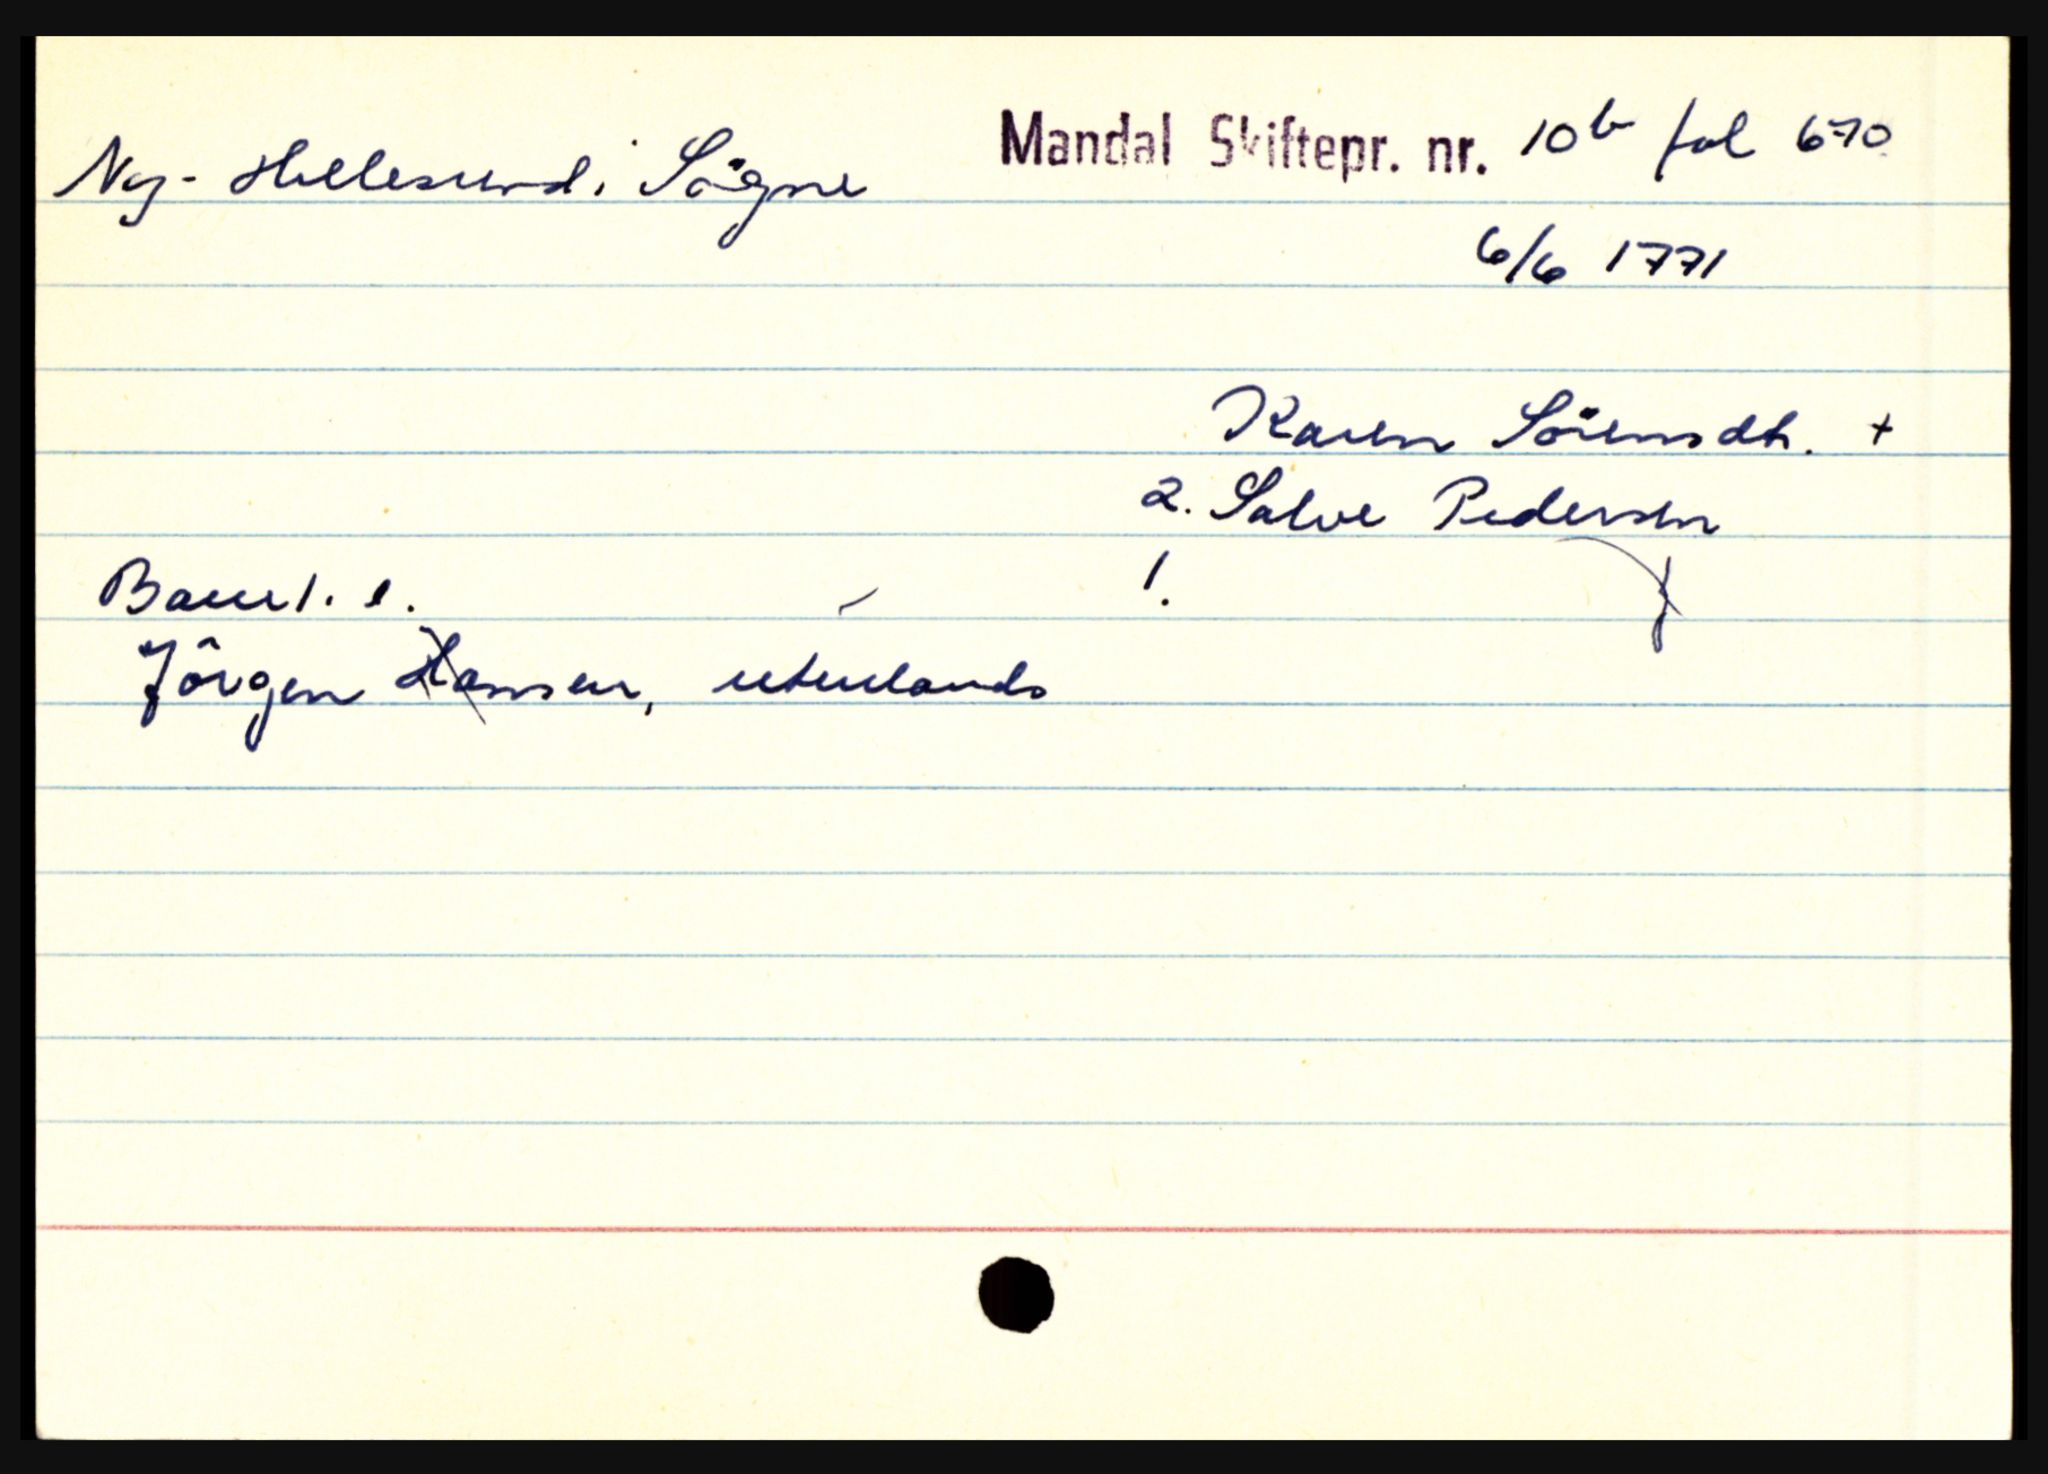 Ny-Hellesund, Sögne Mandal Skiftepr. nr. 10b fol 670
6/6 1771
Karen Sörensdt. +
2. Salve Pedersen
Barn 1. e. 1.
Jörgen Hansen, utenlands